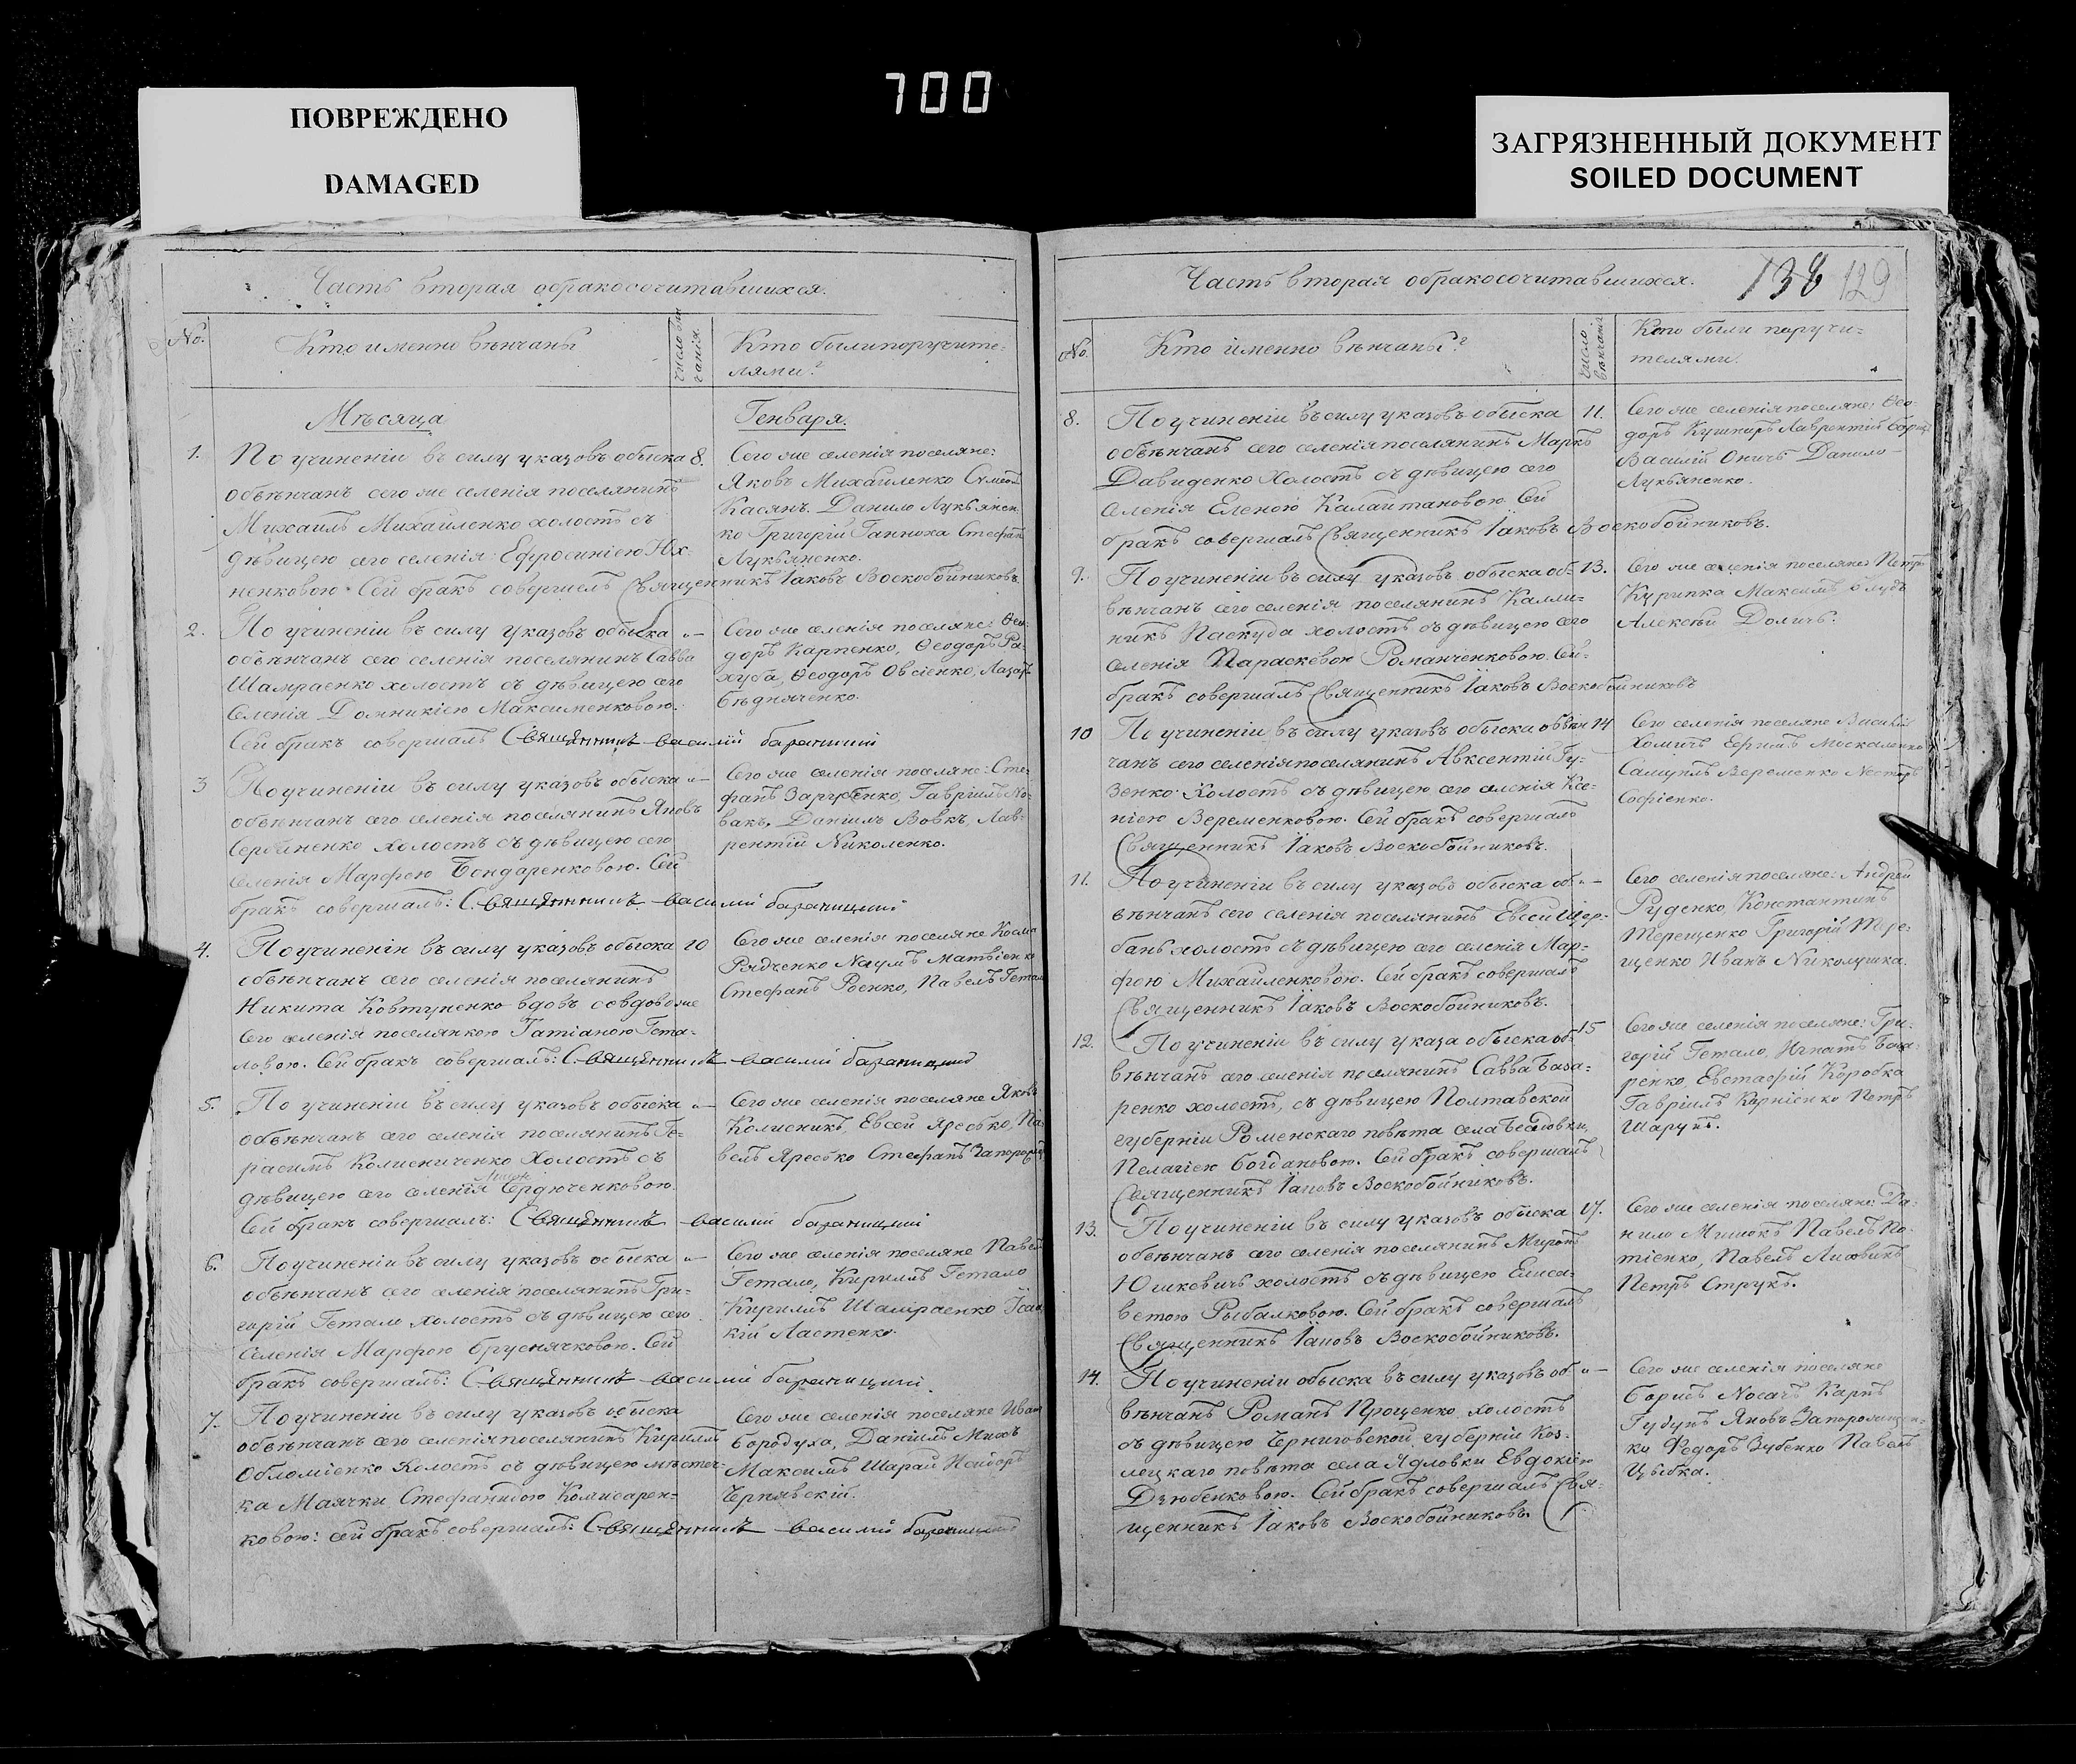 700
ПОВРЕЖДЕНО
DAMAGED
ЗАГРЯЗНЕННЫЙ ДОКУМЕНТ
SOILED DOCUMENT
Часть вторая обракосочитавшихся.
No.
Кто именно вѣнчаны
число вѣн
чанія.
Кто были поручите=
лями?
Мѣсяца
Генваря.
1.
По учиненіи въ силу указовъ обыска
8.
обвѣнчанъ сего же селенія поселянинъ
Михаилъ Михайленко холостъ съ
дѣвицею сего селенія Ефросиніею
ненковою. Сей бракъ совершилъ Священникъ Іаковъ Воскобойниковъ.
Сего же селенія поселяне:
Яковъ Михайленко
Касянъ. Данило Лукьянен
ко Григорій Ганноха Стефанъ
Лукьяненко.
2.
По учиненіи въ силу указовъ обыска
"—
обвѣнчанъ сего селенія поселянинъ Савва
Шамраенко холостъ съ дѣвицею сего
селенія Домникіею Максименковою.
Сей бракъ совершалъ Священникъ василій
Сего же селенія поселяне: Ѳео
доръ Карпенко, Ѳеодоръ Ра=
хуба, Ѳеодоръ Овсіенко, Лазарь
Бѣдняченко.
3
По учиненіи въ силу указовъ обыска
"—
обвѣнчанъ сего селенія поселянинъ Яковъ
Сербиненко холостъ съ дѣвицею сего
селенія Марфою Бондаренковою. Сей
бракъ совершалъ: Священникъ василій
Сего же селенія поселяне: Сте=
фанъ Зарубенко, Гавріилъ Но=
вакъ, Даніилъ Вовкъ, Лав=
рентій Николенко.
4.
По учиненіи въ силу указовъ обыска
10
обвѣнчанъ сего селенія поселянинъ
Никита Ковтуненко вдовъ со вдовою же
сего селенія поселянкою Татіаною Гета=
ловою. Сей бракъ совершалъ: Священникъ василій
Сего же селенія поселяне Косма
Рядченко Наумъ Матвіенко
Стефанъ Роенко, Павелъ Гетало
5.
По учиненіи въ силу указовъ обыска
"—
обвѣнчанъ сего селенія поселянинъ Ге=
расимъ Колисниченко холостъ съ
дѣвицею сего селенія Сердюченковою.
Сей бракъ совершалъ: Священникъ василій
Сего же селенія поселяне Яковъ
Колисникъ, Евсей Яресько, Па=
велъ Яресько Стефанъ
6.
По учиненіи въ силу указовъ обыска
"—
обвѣнчанъ сего селенія поселянинъ Гри=
горій Гетало холостъ съ дѣвицею сего
селенія Марфою Бруснячковою. Сей
бракъ совершалъ: Священникъ василій
Сего же селенія поселяне Павелъ
Гетало, Кирилъ Гетало
Кирилъ Шамраенко
кій Ластенко.
7.
По учиненіи въ силу указовъ обыска
обвѣнчанъ сего селенія поселянинъ Кириллъ
Обломіенко холостъ съ дѣвицею мѣстеч=
ка Маячки, Стефанидою Комисарен=
ковою: сей бракъ совершалъ: Священникъ василій
Сего же селенія поселяне Иванъ
Бородуха, Даніилъ Михъ
Максимъ Шарай Исидоръ
Чернявскій.
Часть вторая обракосочитавшихся.
138 129
No.
Кто именно вѣнчаны?
число
вѣнчанія
Кто были поручи=
телями.
8.
По учиненіи въ силу указовъ обыска
11.
обвѣнчанъ сего селенія поселянинъ Маркъ
Давиденко холостъ съ дѣвицею сего
селенія Еленою Калаитановою. Сей
бракъ совершалъ Священникъ Іаковъ Воскобойниковъ.
Сего же селенія поселяне: Ѳео=
доръ Кушниръ Лаврентій
Василій Оничъ Данило
Лукьяненко.
9.
По учиненіи въ силу указовъ обыска об=
13.
вѣнчанъ сего селенія поселянинъ Калли=
никъ Паскуда холостъ съ дѣвицею сего
селенія Параскевою Романченковою. Сей=
бракъ совершалъ Священникъ Іаковъ Воскобойниковъ
Сего же селенія поселяне Петръ
Курипка Максимъ
Алексѣй Доличъ.
10
По учиненіи въ силу указовъ обыска обвѣн
14
чанъ сего селенія поселянинъ Авксентій Гу=
зенко. Холостъ съ дѣвицею сего селенія Ксе=
ніею Веременковою. Сей бракъ совершалъ
Священникъ Іаковъ Воскобойниковъ.
Сего селенія поселяне Василій
Хомичъ Ефимъ Москаленко
Самуилъ Веременко Несторъ
Софіенко.
11.
По учиненіи въ силу указовъ обыска об=
"—
вѣнчанъ сего селенія поселянинъ Евсей Щер=
бань холостъ съ дѣвицею сего селенія Мар=
фою Михайленковою. Сей бракъ совершалъ
Священникъ Іаковъ Воскобойниковъ.
Сего селенія поселяне: Андрей
Руденко, Константинъ
Терещенко Григорій Тере=
щенко Иванъ Николушка.
12.
По учиненіи въ силу указа обыска об=
15
вѣнчанъ сего селенія поселянинъ Савва База=
ренко холостъ, съ дѣвицею Полтавской
губерніи Роменскаго повѣта села Бѣловки,
Пелагіею Богдановою. Сей бракъ совершалъ
Священникъ Іаковъ Воскобойниковъ.
Сего же селенія поселяне: Гри=
горій Гетало, Игнатъ База=
ренко, Евстафій Коробка
Гавріилъ Корніенко Петръ
Шарунъ.
13.
По учиненіи въ силу указовъ обыска
17.
обвѣнчанъ сего селенія поселянинъ Миронъ
Юшкевичъ холостъ съ дѣвицею Елиса=
ветою Рыбалковою. Сей бракъ совершалъ
Священникъ Іаковъ Воскобойниковъ.
Сего же селенія поселяне Да=
нило Мишокъ Павелъ По=
тіенко, Павелъ
Петръ Струкъ.
14.
По учиненіи обыска въ силу указовъ об=
"—
вѣнчанъ Романъ Проценко холостъ
съ дѣвицею Черниговской губерніи Коз=
лецкаго повѣта села Ядловки Евдокіею
Дзюбенковою. Сей бракъ совершалъ Свя=
щенникъ Іаковъ Воскобойниковъ.
Сего же селенія поселяне
Борисъ Носачъ Карпъ
Губунъ Яковъ
ко Федоръ Зубенко Павелъ
Цыбка.